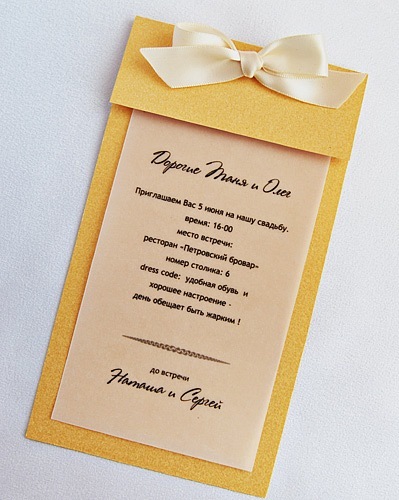 Дорогие Таня и Олег
Приглашаем Вас 5 июня на нашу свадьбу.
время: 16-00
место встречи:
ресторан «Петровский бровар»
номер столика: 6
dress code: удобная обувь и
хорошее настроение -
день обещает быть жарким !
до встречи
Наташа и Сергей